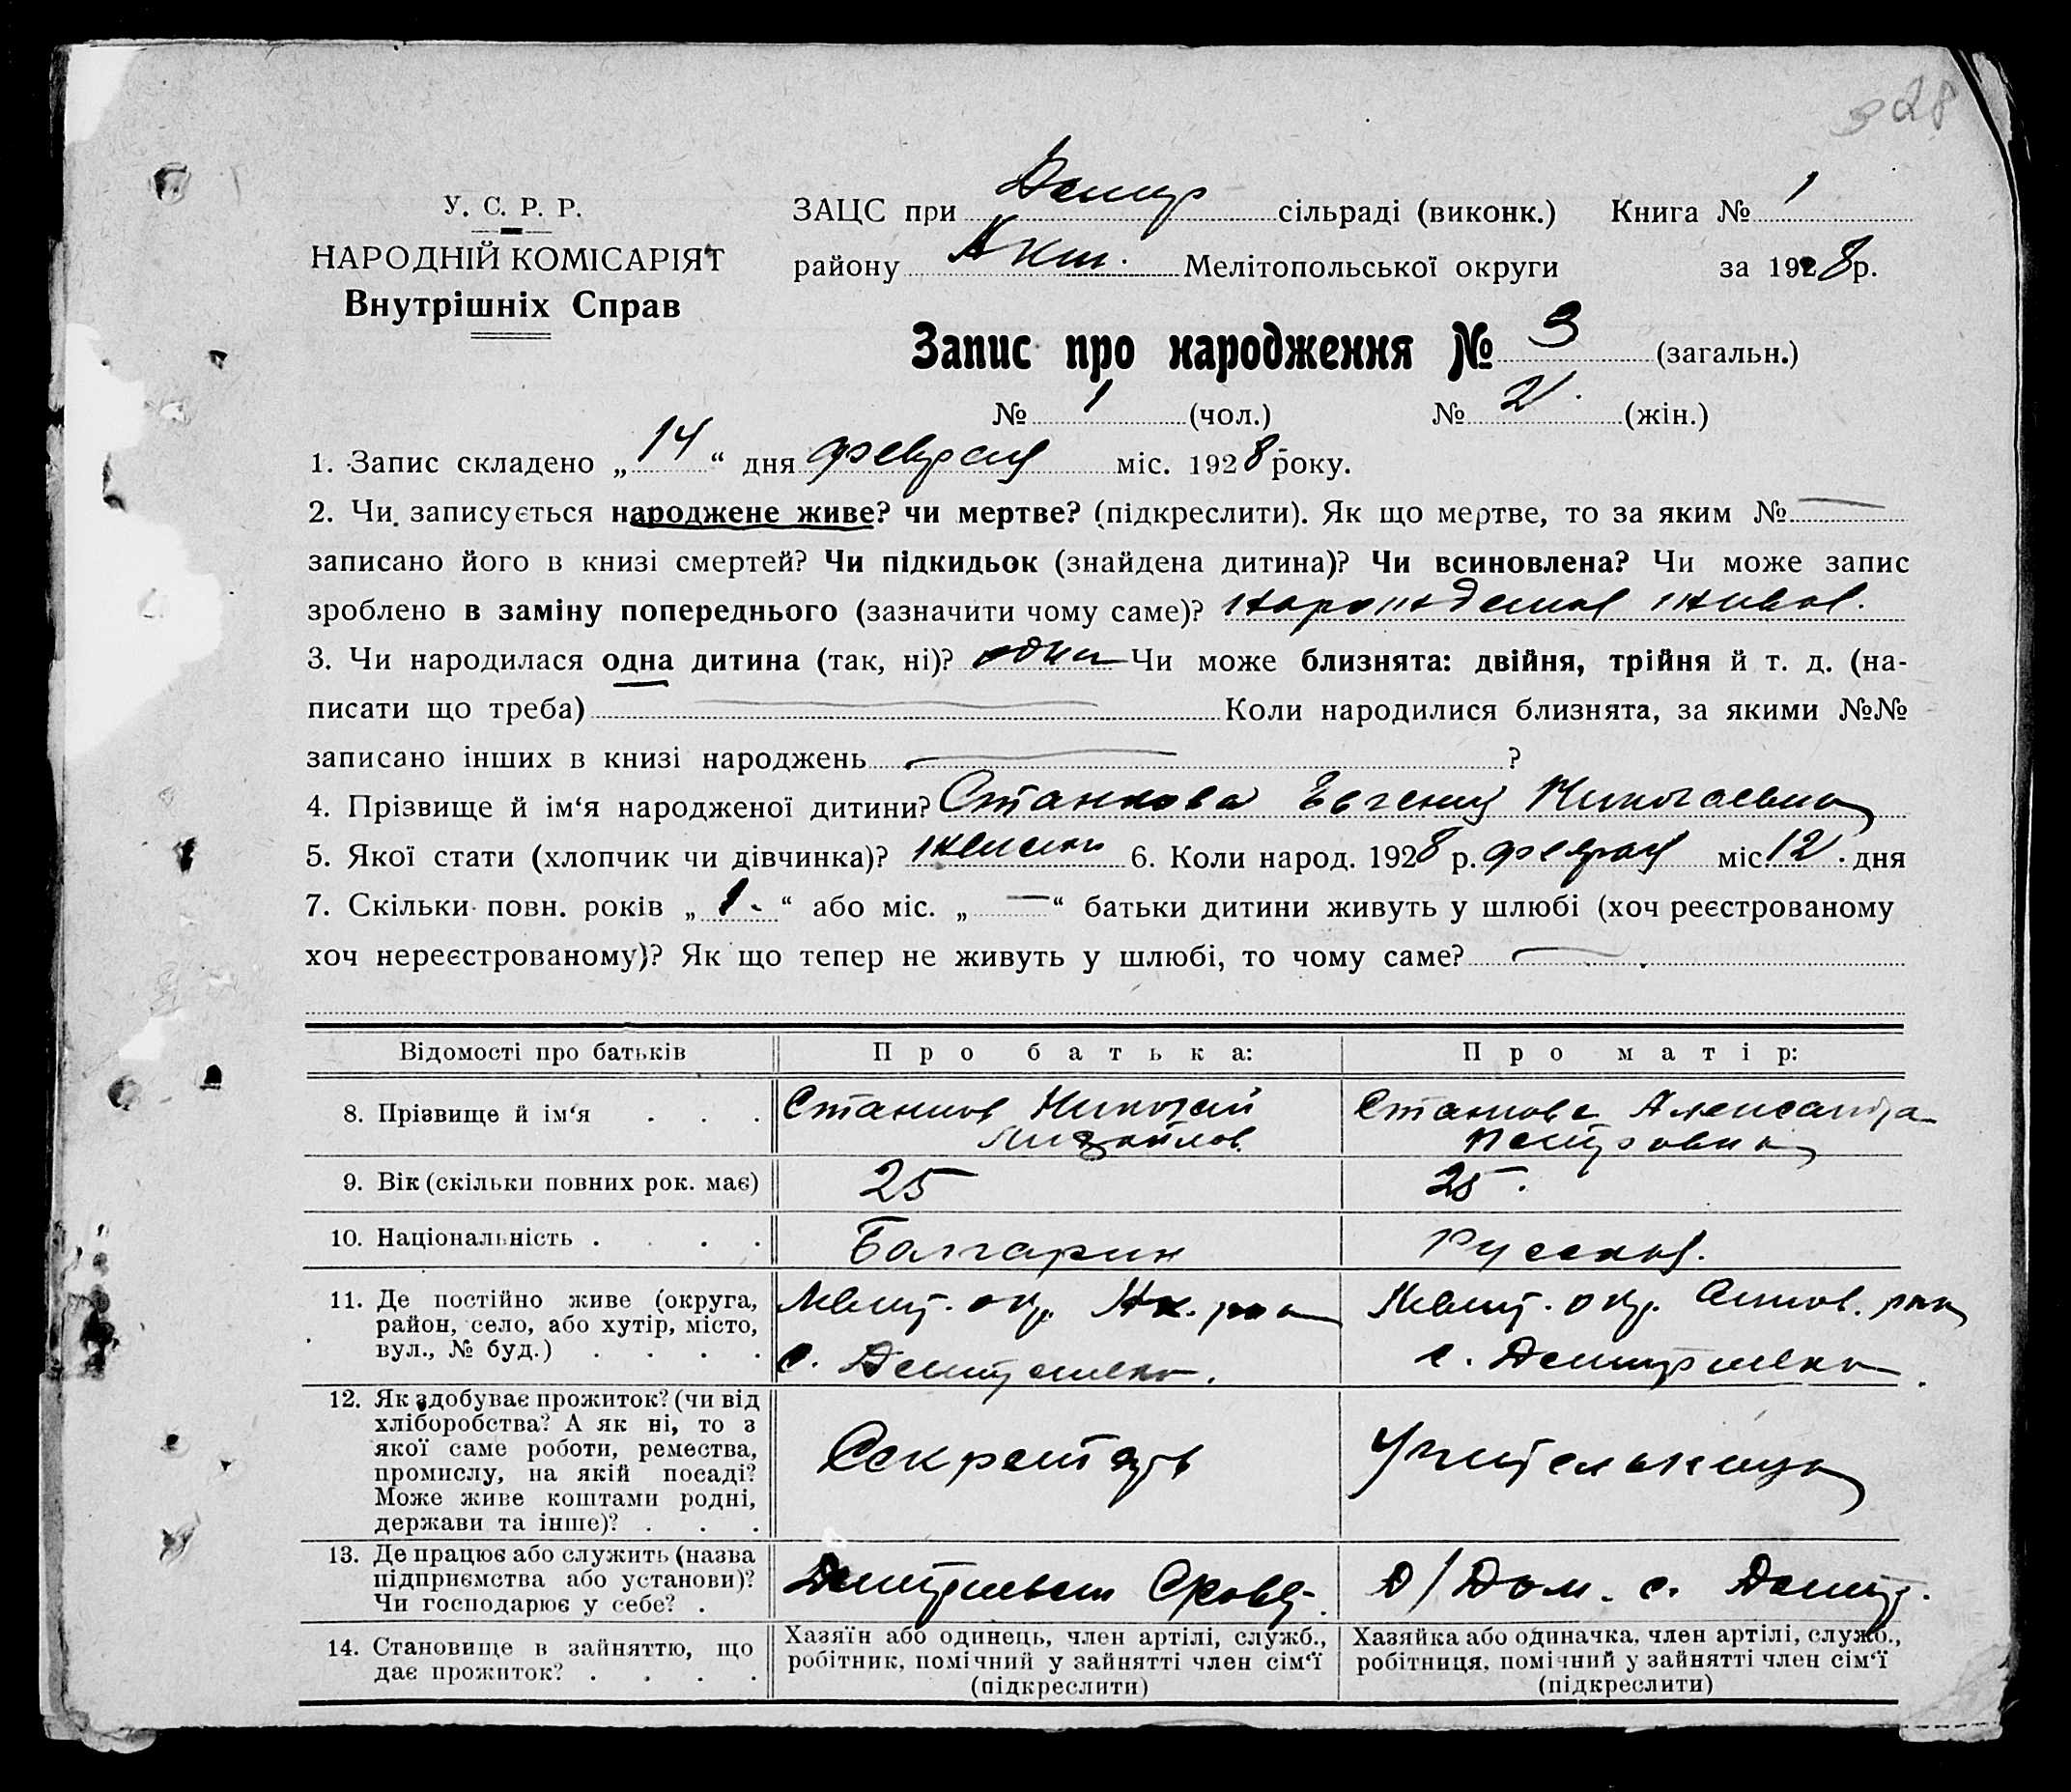 328
У. С. Р. Р.
НАРОДНІЙ КОМІСАРІЯТ
Внутрішніх Справ
ЗАЦС при Демир сільраді (виконк.) Книга № 1
району Аким. Мелітопольської округи за 1928 р.
Запис про народження № 3 (загальн.)
№ 1 (чол.) № 2 (жін.)
1. Запис складено „14“ дня февраля міс. 1928 року.
2. Чи записується народжене живе? чи мертве? (підкреслити). Як що мертве, то за яким № —
записано його в книзі смертей? Чи підкидьок (знайдена дитина)? Чи всиновлена? Чи може запис
зроблено в заміну попереднього (зазначити чому саме)? живая.
3. Чи народилася одна дитина (так, ні)? одна Чи може близнята: двійня, трійня й т. д. (на-
писати що треба) — Коли народилися близнята, за якими №№
записано інших в книзі народжень — ?
4. Прізвище й ім‘я народженої дитини? Станкова Евгения Николаевна
5. Якої стати (хлопчик чи дівчинка)? 6. Коли народ. 1928 р. февраля міс. 12. дня
7. Скільки повн. років „1.“ або міс. „—“ батьки дитини живуть у шлюбі (хоч реєстрованому
хоч нереєстрованому)? Як що тепер не живуть у шлюбі, то чому саме? —
Відомості про батьків Про батька: Про матір:
8. Прізвище й ім‘я Станков Николай Михайлов. Станкова Александра Петровна
9. Вік (скільки повних рок. має) 25 25.
10. Національність Болгарин Русская.
11. Де постійно живе (округа,
район, село, або хутір, місто,
вул., № буд.)
Мелит. окр. Ак. рна
с.
Мелит. окр. рна
с.
12. Як здобуває прожиток? (чи від
хліборобства? А як ні, то з
якої саме роботи, ремества,
промислу, на якій посаді?
Може живе коштами родні,
держави та інше)?
Секретарь
Учительница
13. Де працює або служить (назва
підприємства або установи)?
Чи господарює у себе?
Д/Дом. с.
14. Становище в зайняттю, що
дає прожиток?
Хазяїн або одинець, член артілі, служб.,
робітник, помічний у зайнятті член сім‘ї
(підкреслити)
Хазяйка або одиначка, член артілі, служб.,
робітниця, помічний у зайнятті член сім‘ї
(підкреслити)